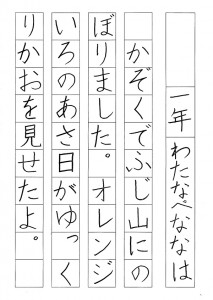 一年 わたなべななは
かぞくでふじ山にの
ぼりました。オレンジ
いろのあさ日がゆっく
りかおを見せたよ。